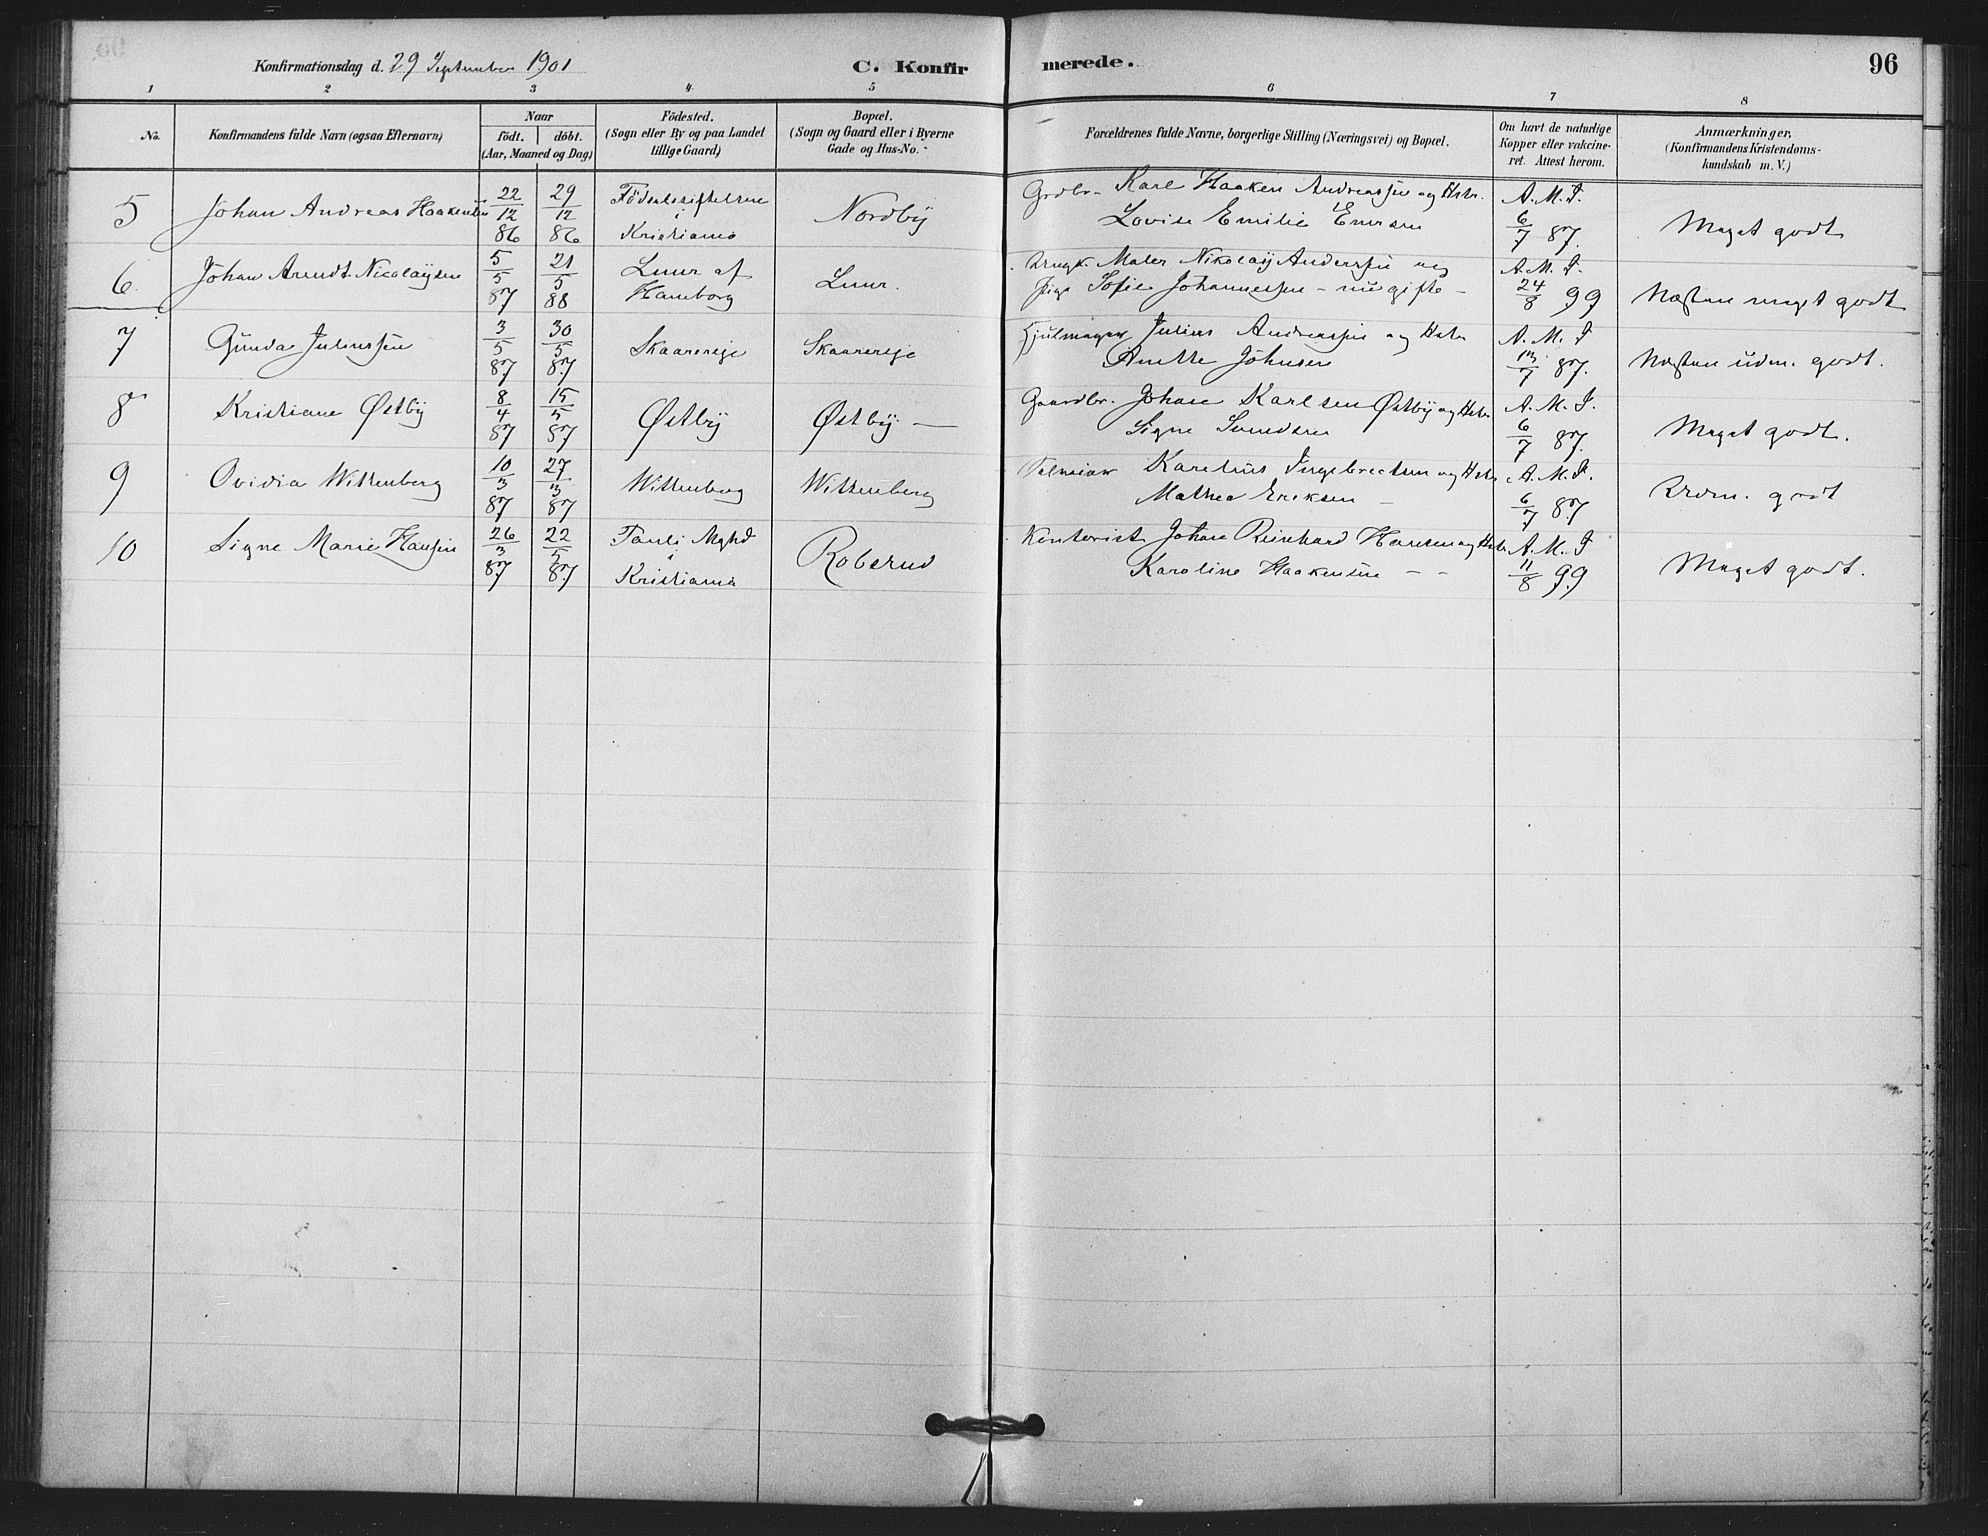 Konfirmationsdag d. 29 September 1901 C. Konfirmerede. 96
1 2 3 4 5 6 7 8
No. Konfirmandens fulde Navn (ogsaa Efternavn) Naar født. døbt. (Aar, Maaned og Dag) Fødested. (Sogn eller By og paa Landet tillige Gaard) Bopæl. (Sogn og Gaard eller i Byerne Gade og Hus-No. Forældrenes fulde Navne, borgerlige Stilling (Næringsvei) og Bopæl. Om havt de naturlige Kopper eller vaccineret. Attest herom. Anmærkninger. (Konfirmandens Kristendomskundskab m. V.)
5 Johan Andreas Haakensen 22/12 86 29/12 86 Fødselsstiftelsen i Kristiania Nordby Grdbr. Karl Haaken Andreassen og Hstr. Lovise Emilie Enersen A. M. J. 6/7 87. Meget godt
6. Johan Arndt Nicolaysen 5/5 87 21/5 88 Luur af Haneborg Luur. Ungk. Maler Nikolay Anderssen og Pige Sofie Johannessen - nu gifte - A. M. J. 24/8 99 Næsten meget godt
7 Gunda Juliussen 3/5 87 30/5 87 Skaarereje Skaarereje Hjulmager Julius Andreassen og Hstr Anette Johnsen A. M. J 13/7 87. Næsten udm. godt.
8 Kristiane Østby 8/4 87 15/5 87 Østby Østby — Gaardbr. Johan Karlsen Østby og Hstr. Signe Svendsen A. M. J. 6/7 87. Meget godt.
9 Ovidia Wittenberg 10/3 87 27/3 87 Wittenberg Wittenberg Karelius Ingebretsen og Hstr Mathea Eriksen - A. M. J. 6/7 87 Udm. godt
10 Signe Marie Hansen 26/3 87 22/5 87 Pauli Mghd i Kristiania Robsrud Kontorist Johan Reinhard Hansen og Hstr. Karoline Haakensen - - A. M. J 11/8 99 Meget godt.